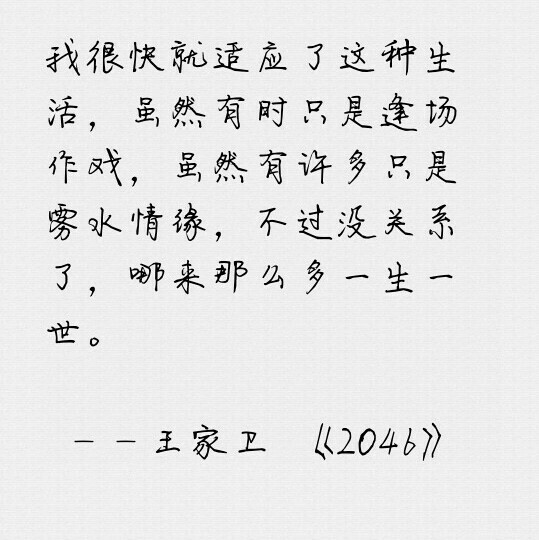 我很快就适应了这种生
活，虽然有时只是逢场
作戏，虽然有许多只是
雾水情缘，不过没关系
了，哪来那么多一生一
世。
——王家卫 《2046》